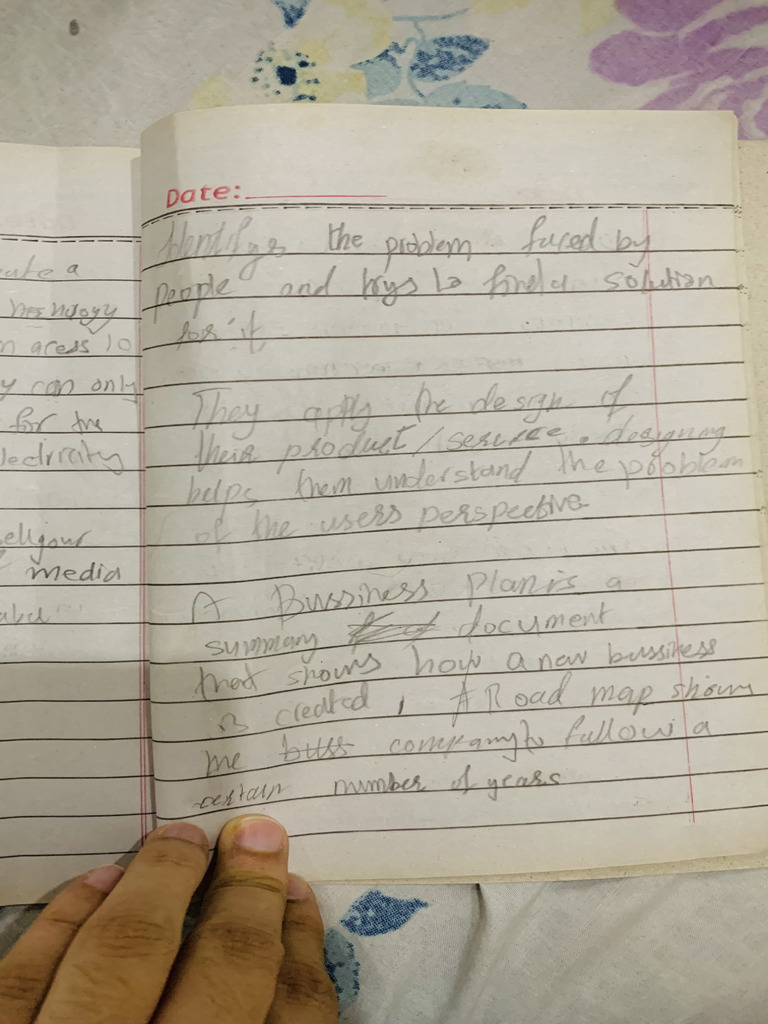 ate a
n acess to
y can only
for the
lectricity
ellyour
media
Date:
Identifys the problem faced by
people and trys to find a solution
for it,
They apply the design of
their product/service. designing
helps them understand the problem
of the users perspective
A Bussiness plan is a
summary document
that shows how a new bussiness
is created, A Road map shows
the buss company to follow a
certain number of years